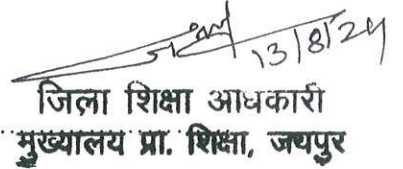 13/8/24
जिला शिक्षा अधिकारी
मुख्यालय प्रा. शिक्षा, जयपुर